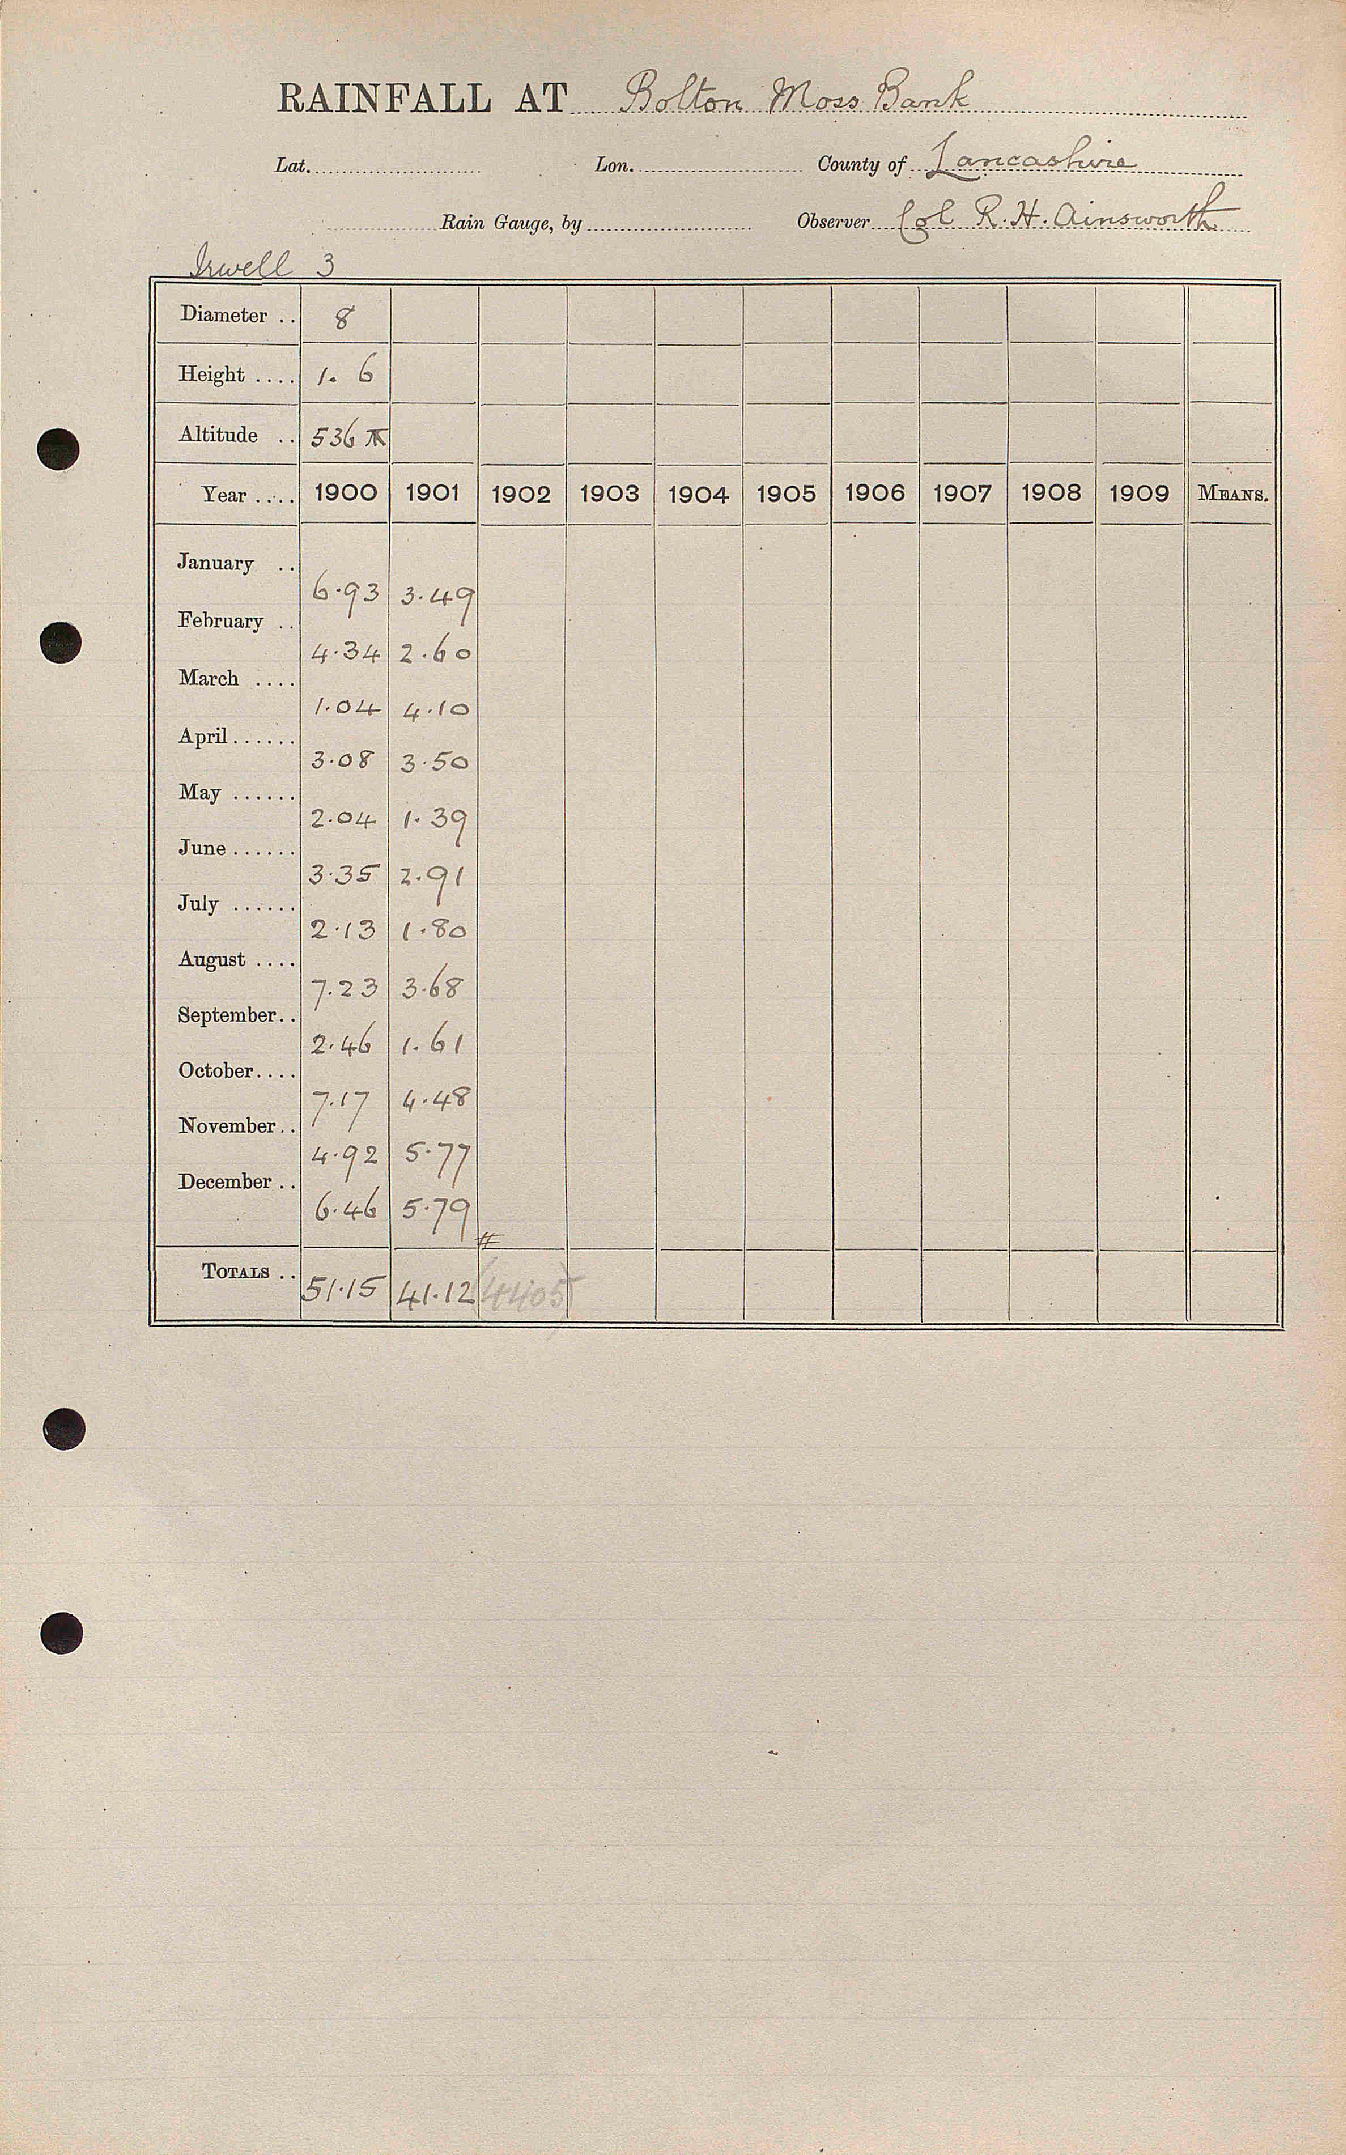 RAINFALL AT Bolton Moss Bank
Lat. Lon. County of Lancashire
Rain Gauge, by Observer Col R. H. Ainsworth
Irwell 3
Diameter .. 8
Height .... 1. 6
Altitude .. 536
Year .... 1900 1901 1902 1903 1904 1905 1906 1907 1908 1909 MEANS.
January .. 6.93 3.49
February .. 4.34 2.60
March .... 1.04 4.10
April ...... 3.08 3.50
May ...... 2.04 1.39
June ...... 3.35 2.91
July ...... 2.13 1.80
August .... 7.23 3.68
September .. 2.46 1.61
October .... 7.17 4.48
November .. 4.92 5.77
December .. 6.46 5.79
TOTALS .. 51.15 41.12 (4405)